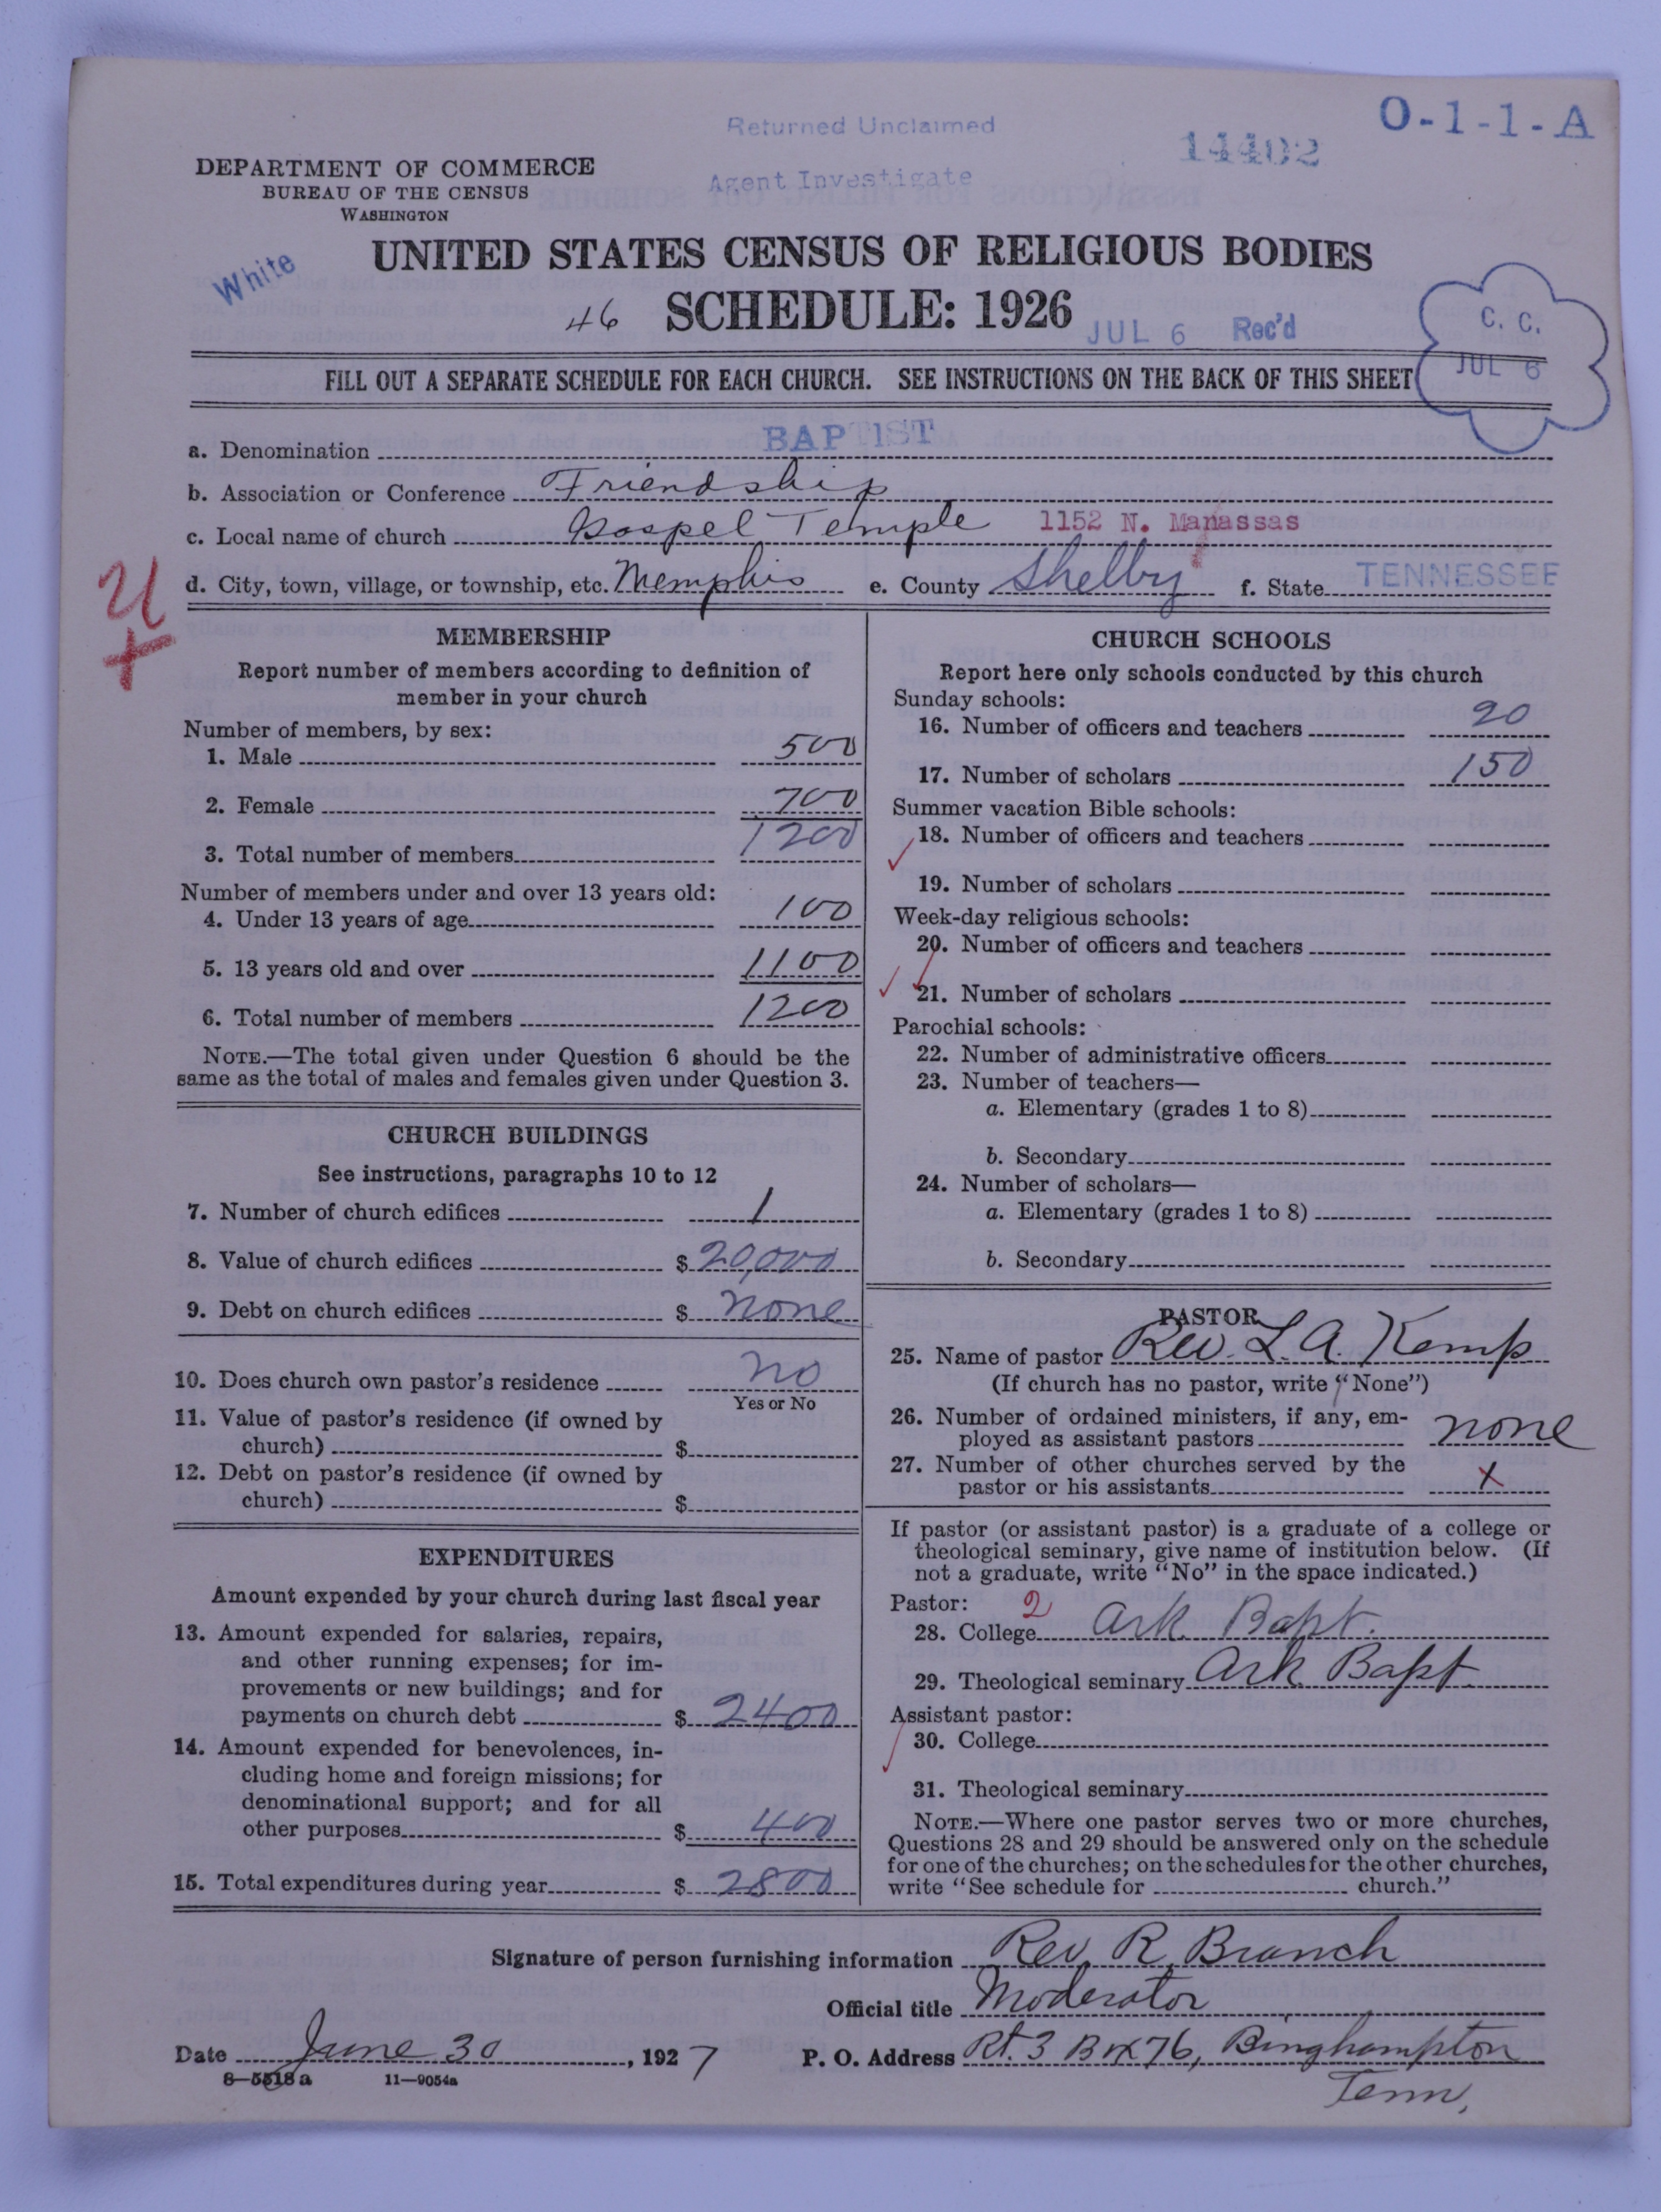 O-1-1-A
Returned Unclaimed
14402
Agent Investigate
DEPARTMENT OF COMMERCE
BUREAU OF THE CENSUS
WASHINGTON
White
UNITED STATES CENSUS OF RELIGIOUS BODIES
46 SCHEDULE: 1926 JUL 6 Rec'd
C. C.
JUL 6
FILL OUT A SEPARATE SCHEDULE FOR EACH CHURCH. SEE INSTRUCTIONS ON THE BACK OF THIS SHEET
a. Denomination BAPTIST
b. Association or Conference Friendship
c. Local name of church Gospel Temple 1152 N. Manassas
d. City, town, village, or township, etc. Memphis e. County Shelby f. State TENNESSEE
MEMBERSHIP
Report number of members according to definition of
member in your church
Number of members, by sex:
1. Male 500
2. Female 700
3. Total number of members 1200
Number of members under and over 13 years old:
4. Under 13 years of age 100
5. 13 years old and over 1100
6. Total number of members 1200
NOTE.—The total given under Question 6 should be the
same as the total of males and females given under Question 3.
CHURCH BUILDINGS
See instructions, paragraphs 10 to 12
7. Number of church edifices 1
8. Value of church edifices $ 20,000
9. Debt on church edifices $ none
10. Does church own pastor's residence no
Yes or No
11. Value of pastor's residence (if owned by
church) $
12. Debt on pastor's residence (if owned by
church) $
EXPENDITURES
Amount expended by your church during last fiscal year
13. Amount expended for salaries, repairs,
and other running expenses; for im-
provements or new buildings; and for
payments on church debt $ 2400
14. Amount expended for benevolences, in-
cluding home and foreign missions; for
denominational support; and for all
other purposes $ 400
15. Total expenditures during year $ 2800
CHURCH SCHOOLS
Report here only schools conducted by this church
Sunday schools:
16. Number of officers and teachers 20
17. Number of scholars 150
Summer vacation Bible schools:
18. Number of officers and teachers
19. Number of scholars
Week-day religious schools:
20. Number of officers and teachers
21. Number of scholars
Parochial schools:
22. Number of administrative officers
23. Number of teachers—
a. Elementary (grades 1 to 8)
b. Secondary
24. Number of scholars—
a. Elementary (grades 1 to 8)
b. Secondary
PASTOR
25. Name of pastor Rev. L. A. Kemp
(If church has no pastor, write "None")
26. Number of ordained ministers, if any, em-
ployed as assistant pastors none
27. Number of other churches served by the
pastor or his assistants x
If pastor (or assistant pastor) is a graduate of a college or
theological seminary, give name of institution below. (If
not a graduate, write "No" in the space indicated.)
Pastor: 2
28. College Ark. Bapt.
29. Theological seminary Ark Bapt.
Assistant pastor:
30. College
31. Theological seminary
NOTE.—Where one pastor serves two or more churches,
Questions 28 and 29 should be answered only on the schedule
for one of the churches; on the schedules for the other churches,
write "See schedule for church."
Signature of person furnishing information Rev. R. Branch
Official title Moderator
Date June 30, 1927 P. O. Address Rt. 3 Box 76, Binghampton
Tenn,
8—5518a 11—9054a